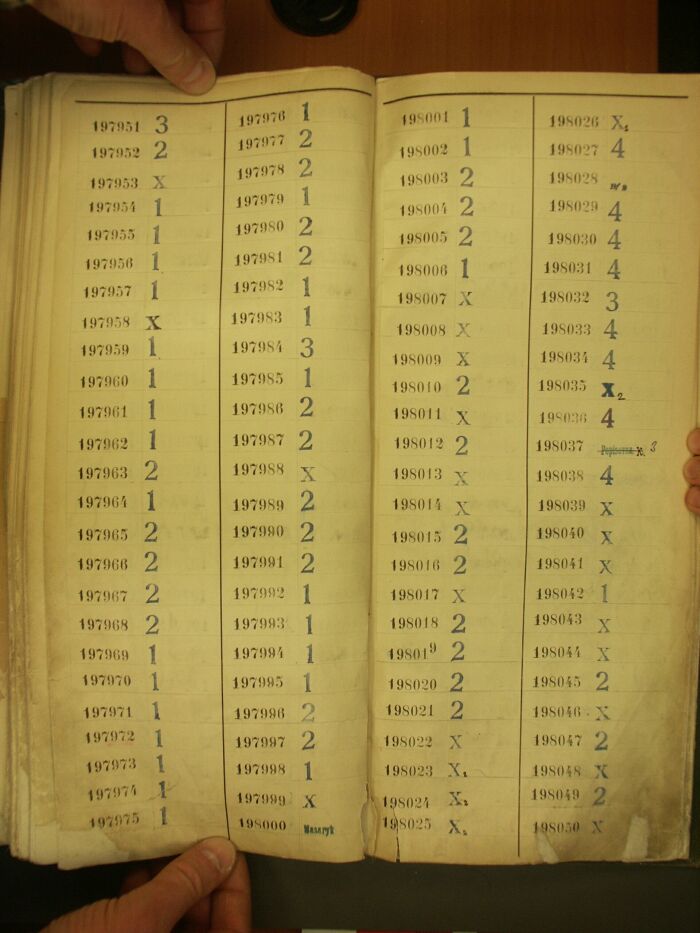 197951 3
197952 2
197953 X
197954 1
197955 1
197956 1
197957 1
197958 X
197959 1
197960 1
197961 1
197962 1
197963 2
197964 1
197965 2
197966 2
197967 2
197968 2
197969 1
197970 1
197971 1
197972 1
197973 1
197974 1
197975 1
197976 1
197977 2
197978 2
197979 1
197980 2
197981 2
197982 1
197983 1
197984 3
197985 1
197986 2
197987 2
197988 X
197989 2
197990 2
197991 2
197992 1
197993 1
197994 1
197995 1
197996 2
197997 2
197998 1
197999 X
198000 Masaryk
198001 1
198002 1
198003 2
198004 2
198005 2
198006 1
198007 X
198008 X
198009 X
198010 2
198011 X
198012 2
198013 X
198014 X
198015 2
198016 2
198017 X
198018 2
198019 2
198020 2
198021 2
198022 X
198023 X
198024 X
198025 X
198026 X
198027 4
198028
198029 4
198030 4
198031 4
198032 3
198033 4
198034 4
198035 X 2
198036 4
198037 X. 3
198038 4
198039 X
198040 X
198041 X
198042 1
198043 X
198044 X
198045 2
198046 X
198047 2
198048 X
198049 2
198050 X